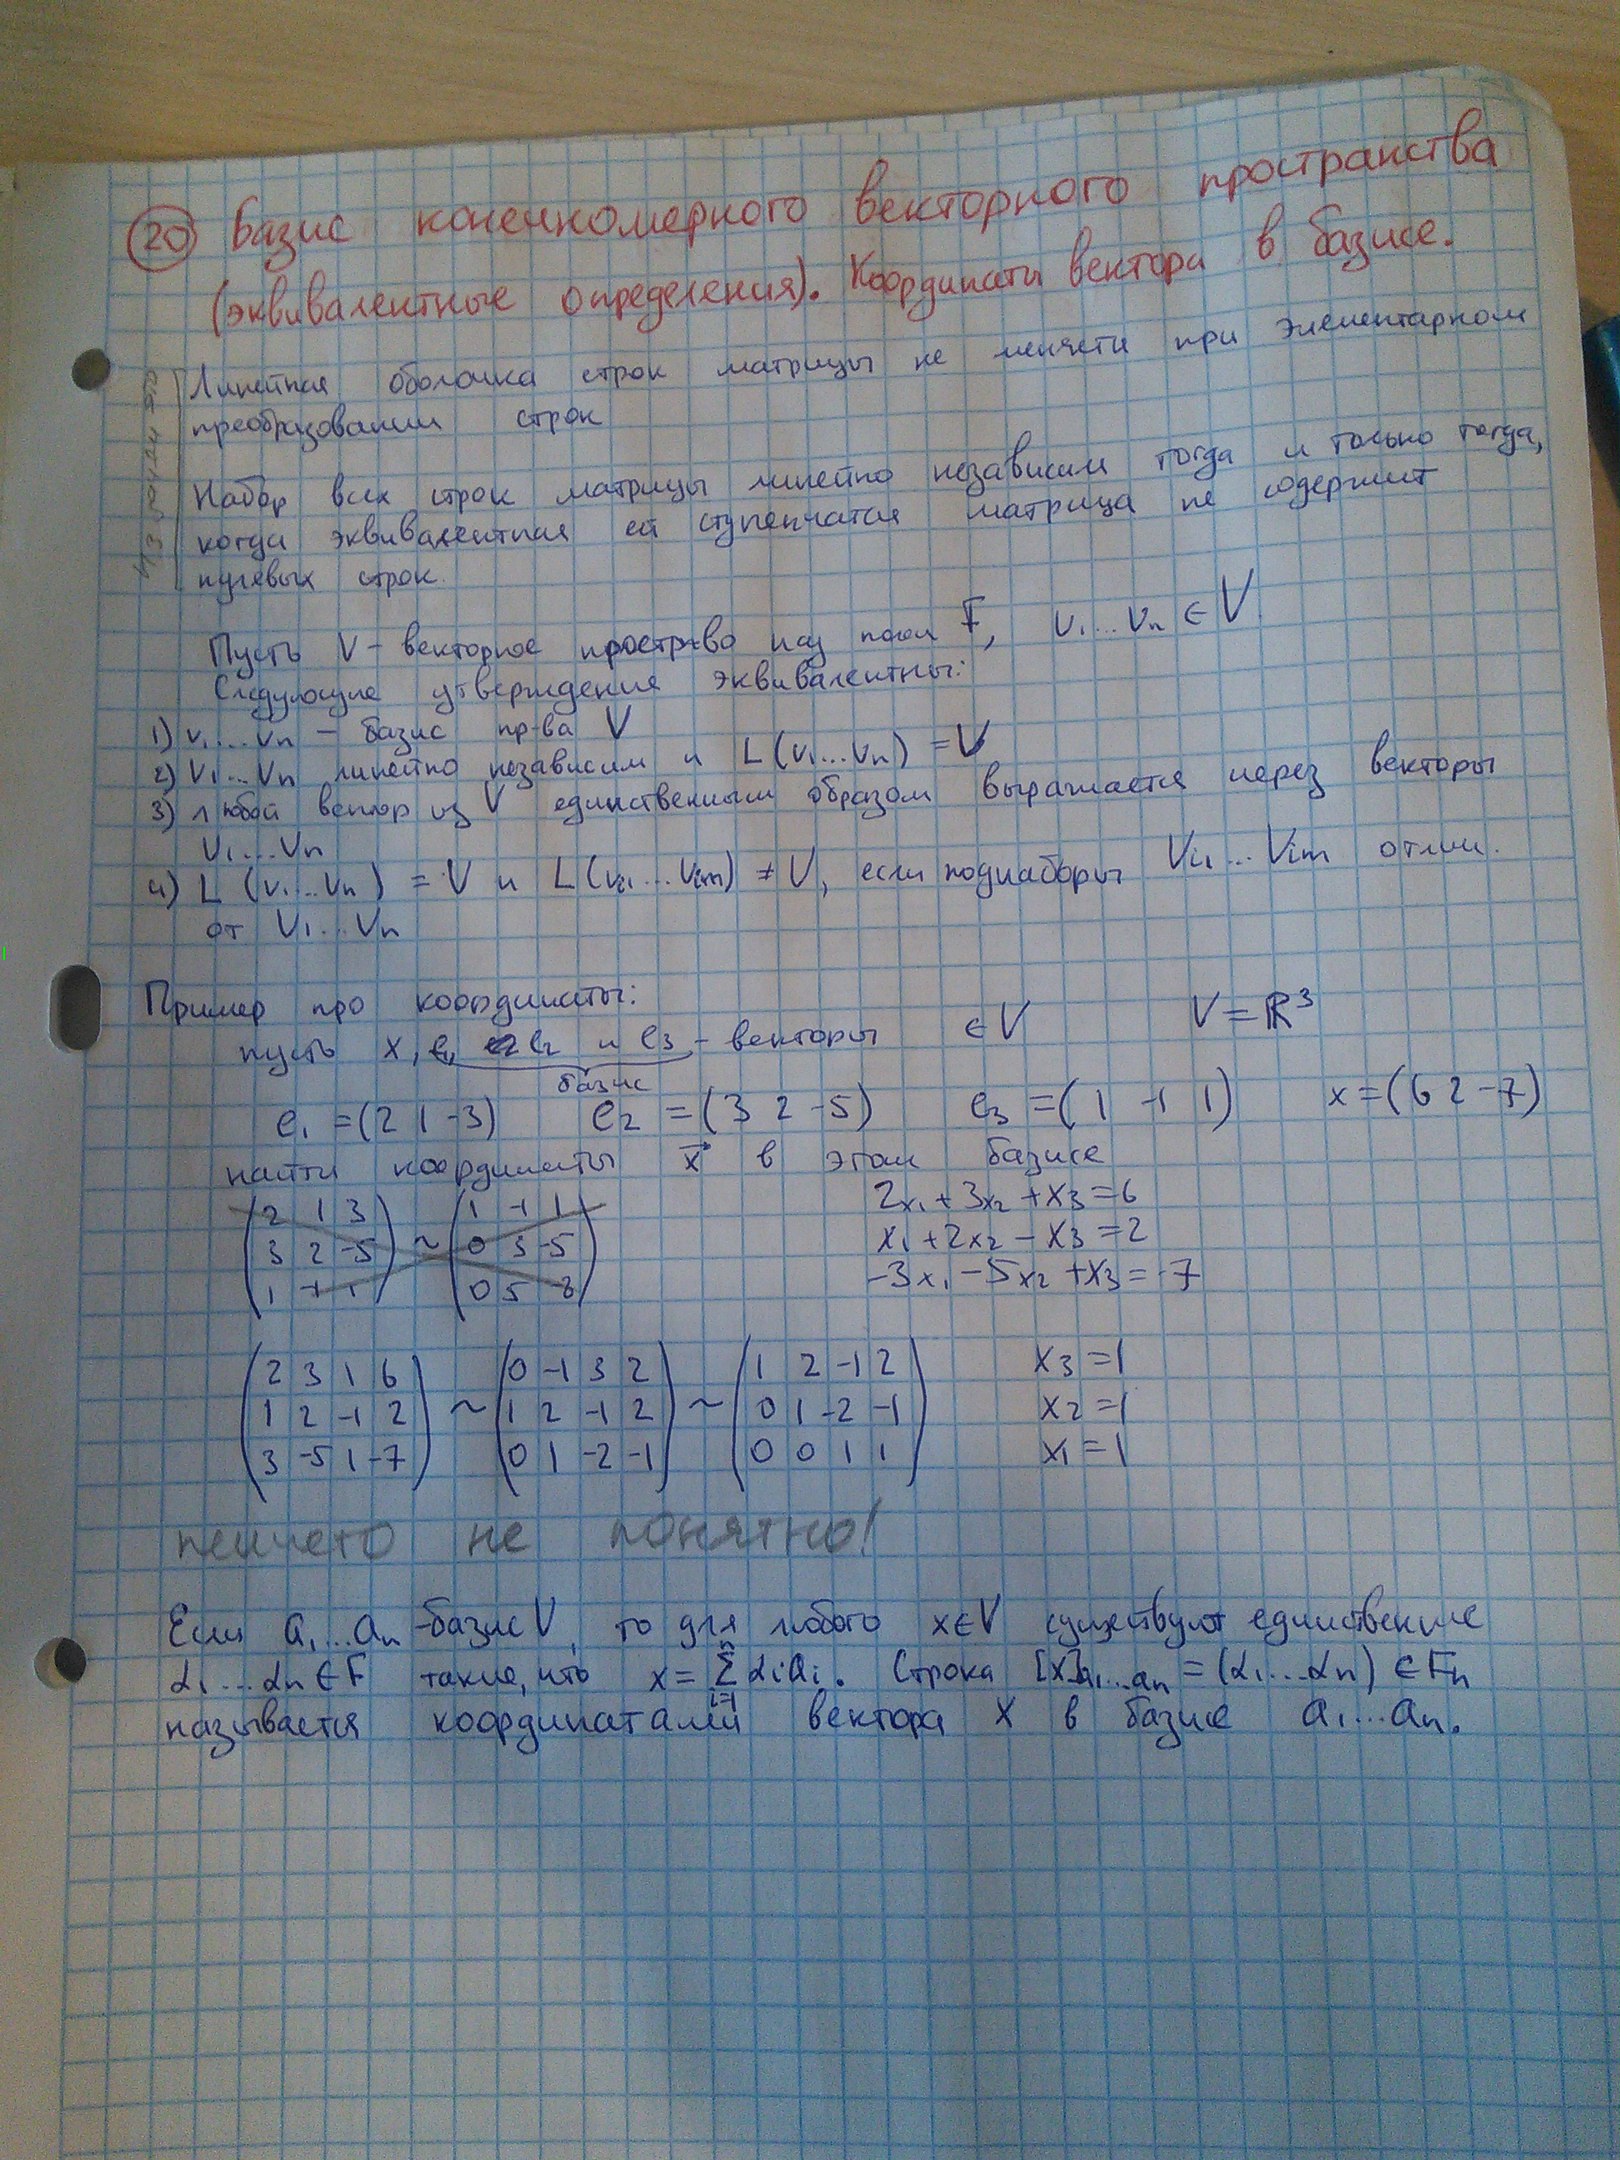 20 Базис конечномерного векторного пространства
(эквивалентные определения). Координаты вектора в базисе.
Линейная оболочка строк матрицы не меняется при элементарном
преобразовании строк
Набор всех строк матрицы линейно независим тогда и только тогда,
когда эквивалентная ей ступенчатая матрица не содержит
нулевых строк.
Пусть V – векторное простр-во над полем F, v₁...vₙ ∈ V
Следующие утверждения эквивалентны:
1) v₁...vₙ – базис пр-ва V
2) v₁...vₙ линейно независим и L(v₁...vₙ) = V
3) любой вектор из V единственным образом выражается через векторы
v₁...vₙ
4) L(v₁...vₙ) = V и L(vᵢ₁...vᵢₘ) ≠ V, если поднаборы vᵢ₁...vᵢₘ отлич.
от v₁...vₙ
Пример про координаты:
пусть x, e₁ e₂ и e₃ – векторы ∈ V V = ℝ³
базис
e₁ = (2 1 -3) e₂ = (3 2 -5) e₃ = (1 -1 1) x = (6 2 -7)
найти координаты x⃗ в этом базисе
(2 1 3) ~ (1 -1 1) 2x₁ + 3x₂ + x₃ = 6
(3 2 -5) (0 3 -5) x₁ + 2x₂ - x₃ = 2
(1 -1 1) (0 5 -8) -3x₁ - 5x₂ + x₃ = -7
(2 3 1 6) (0 -1 3 2) (1 2 -1 2) x₃ = 1
(1 2 -1 2) ~ (1 2 -1 2) ~ (0 1 -2 -1) x₂ = 1
(3 -5 1 -7) (0 1 -2 -1) (0 0 1 1) x₁ = 1
не понятно!
Если a₁...aₙ - базис V, то для любого x∈V существуют единственные
α₁...αₙ ∈ F такие, что x = Σⁿᵢ₌₁ αᵢaᵢ. Строка [x]a₁...aₙ = (α₁...αₙ) ∈ Fₙ
называется координатами вектора x в базисе a₁...aₙ.